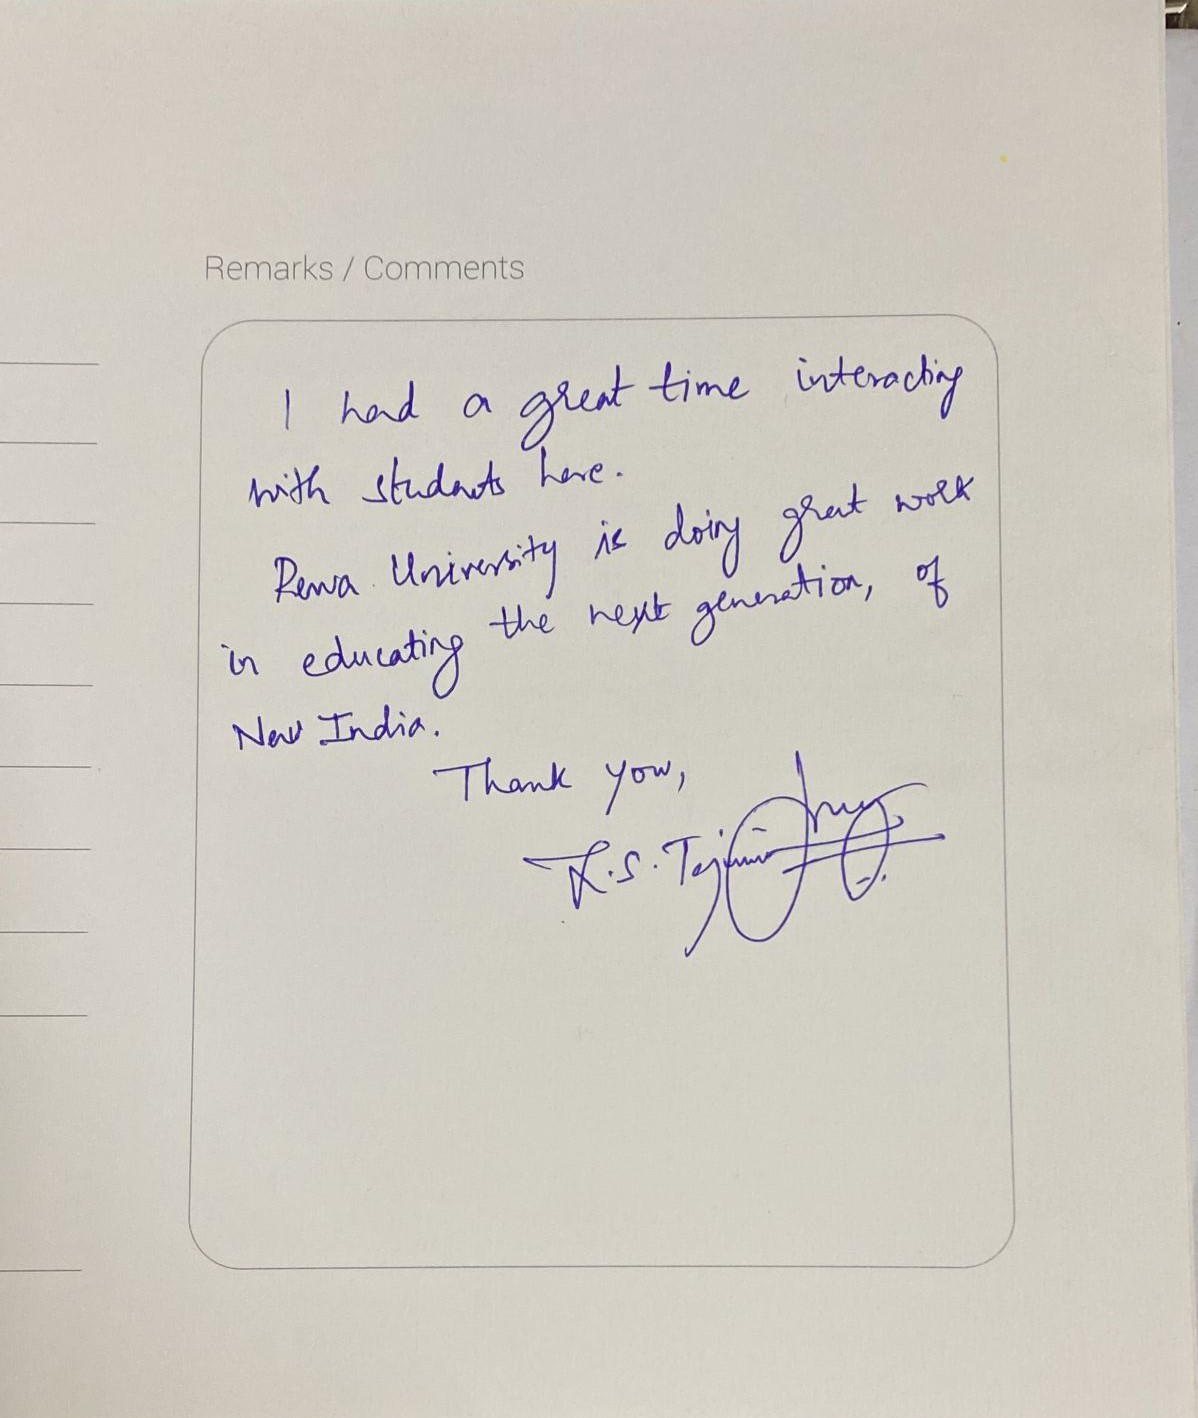 Remarks / Comments
I had a great time interacting
with students here.
Rewa University is doing great work
in educating the next generation, of
New India.
Thank you,
L.S. Tej